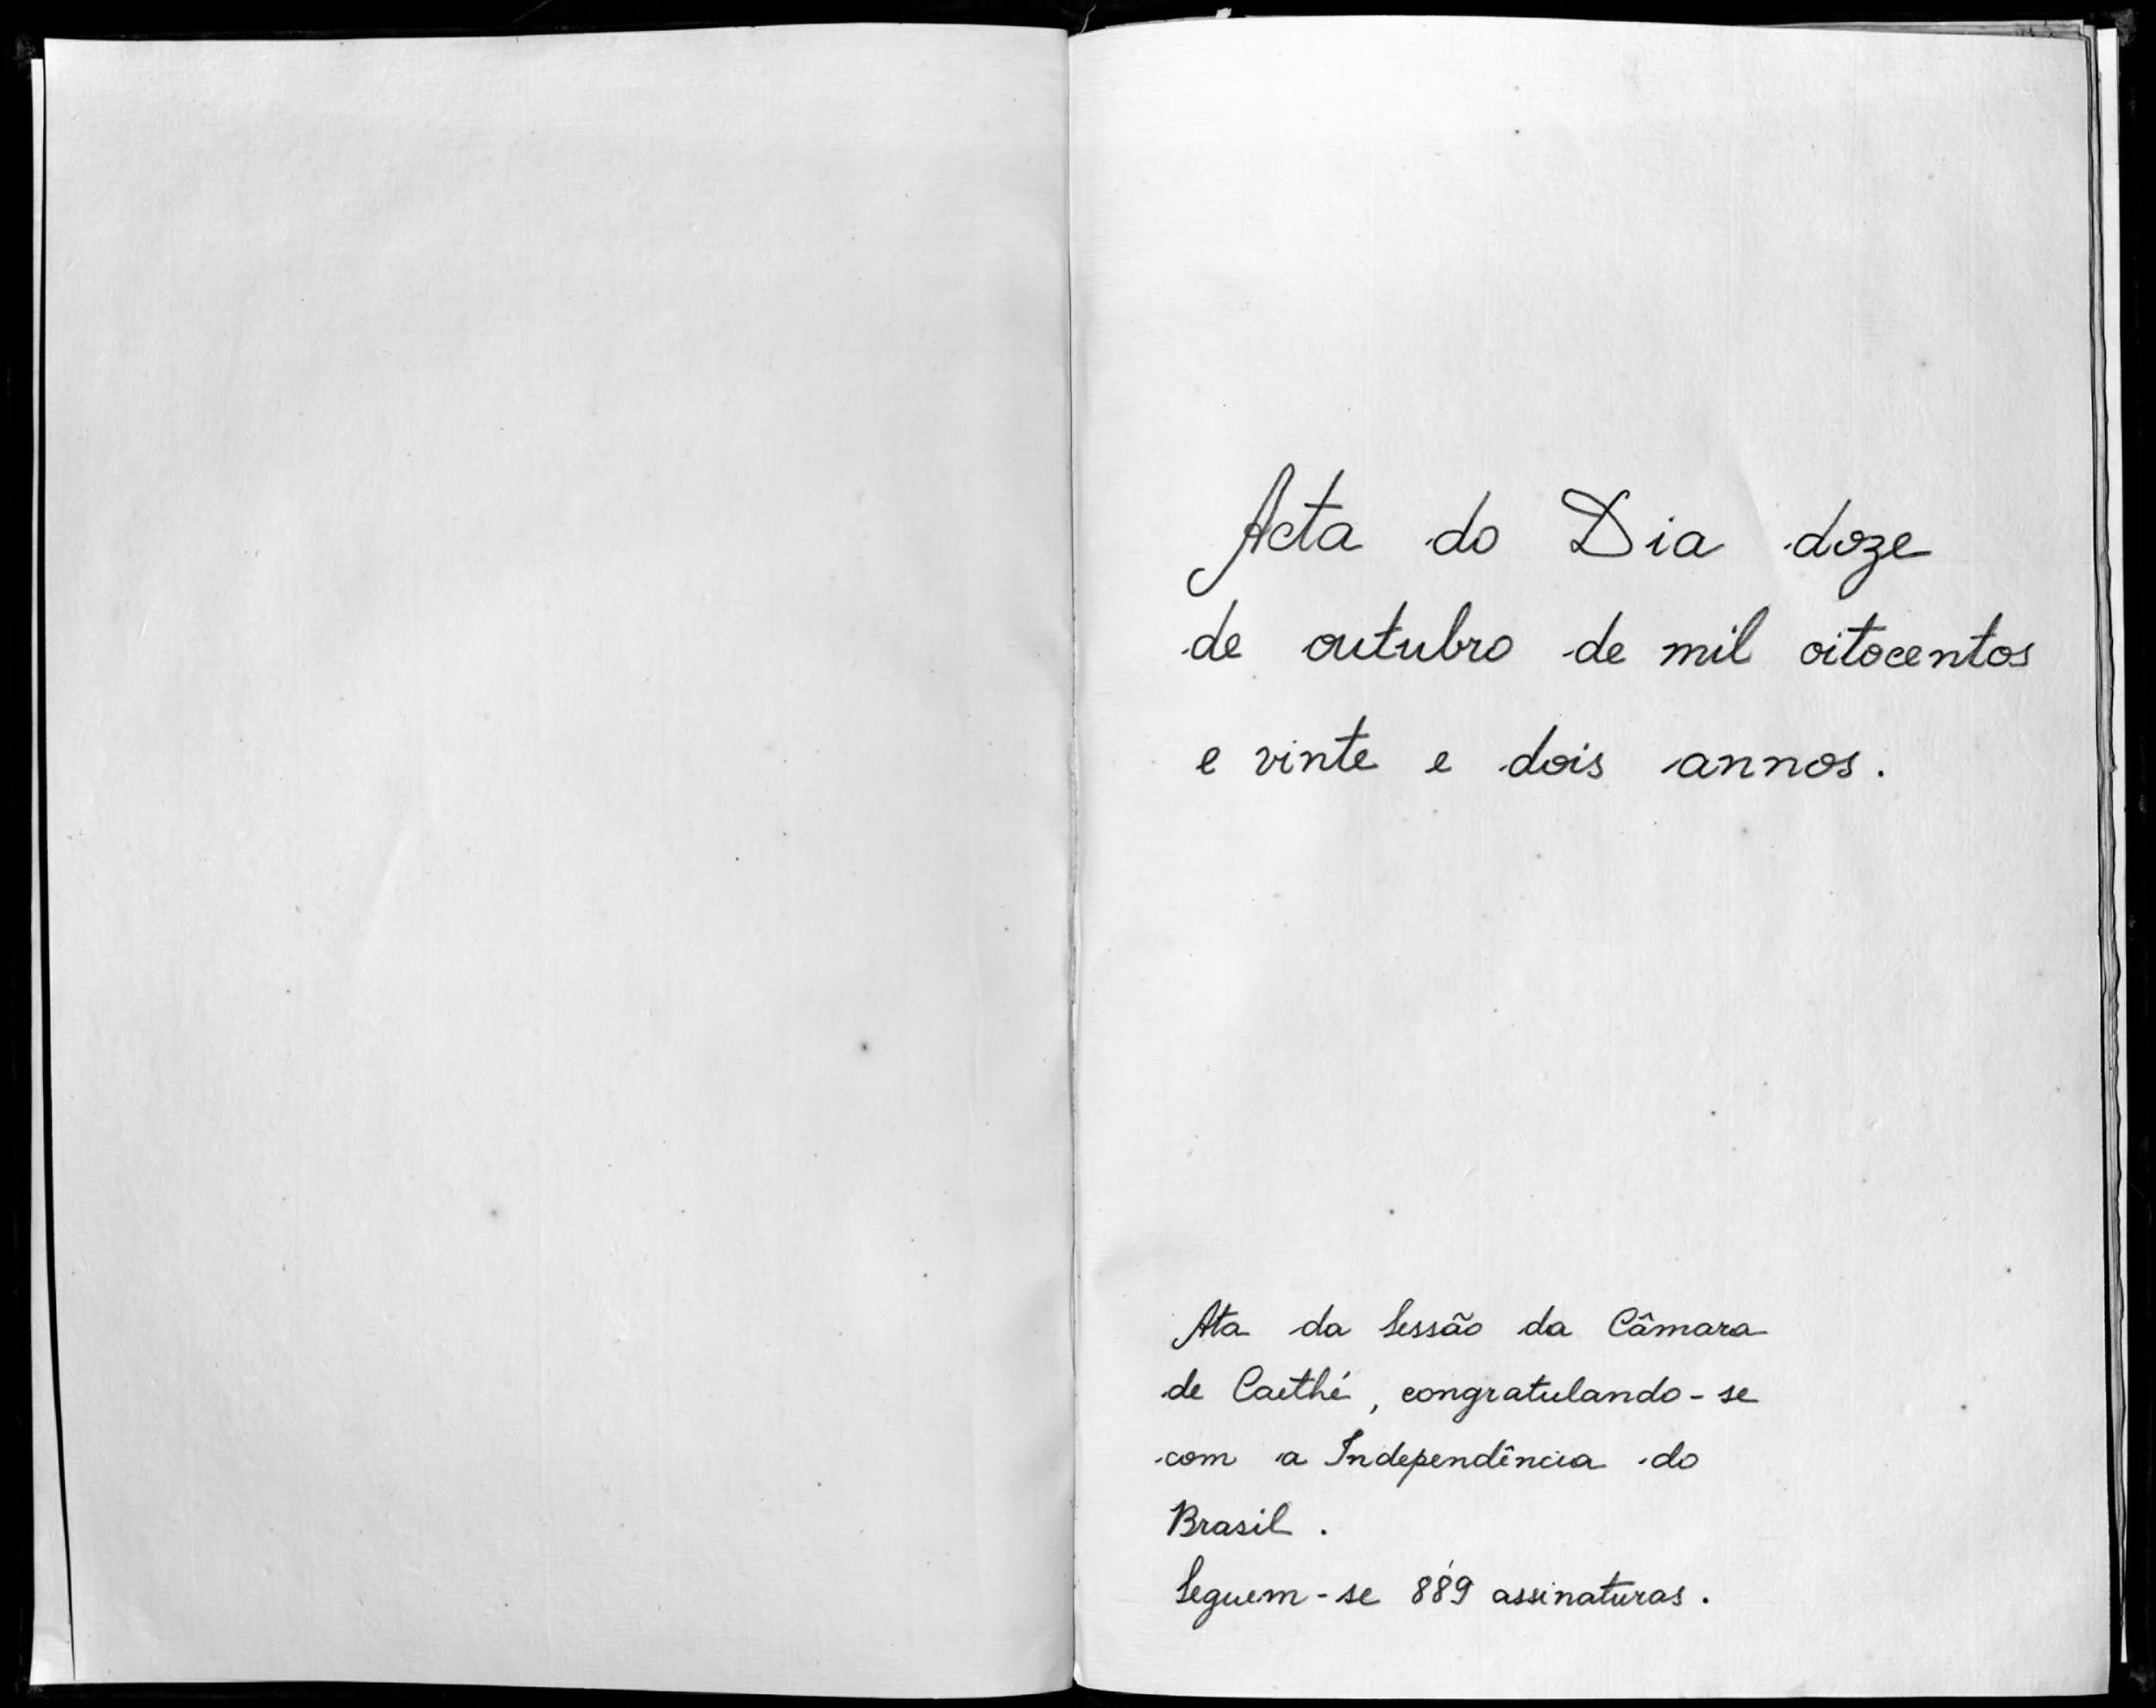 Acta do Dia doze
de outubro de mil oitocentos
e vinte e dois annos.
Ata da Sessão da Câmara
de Caethé, congratulando-se
com a Independência do
Brasil.
Seguem-se 889 assinaturas.